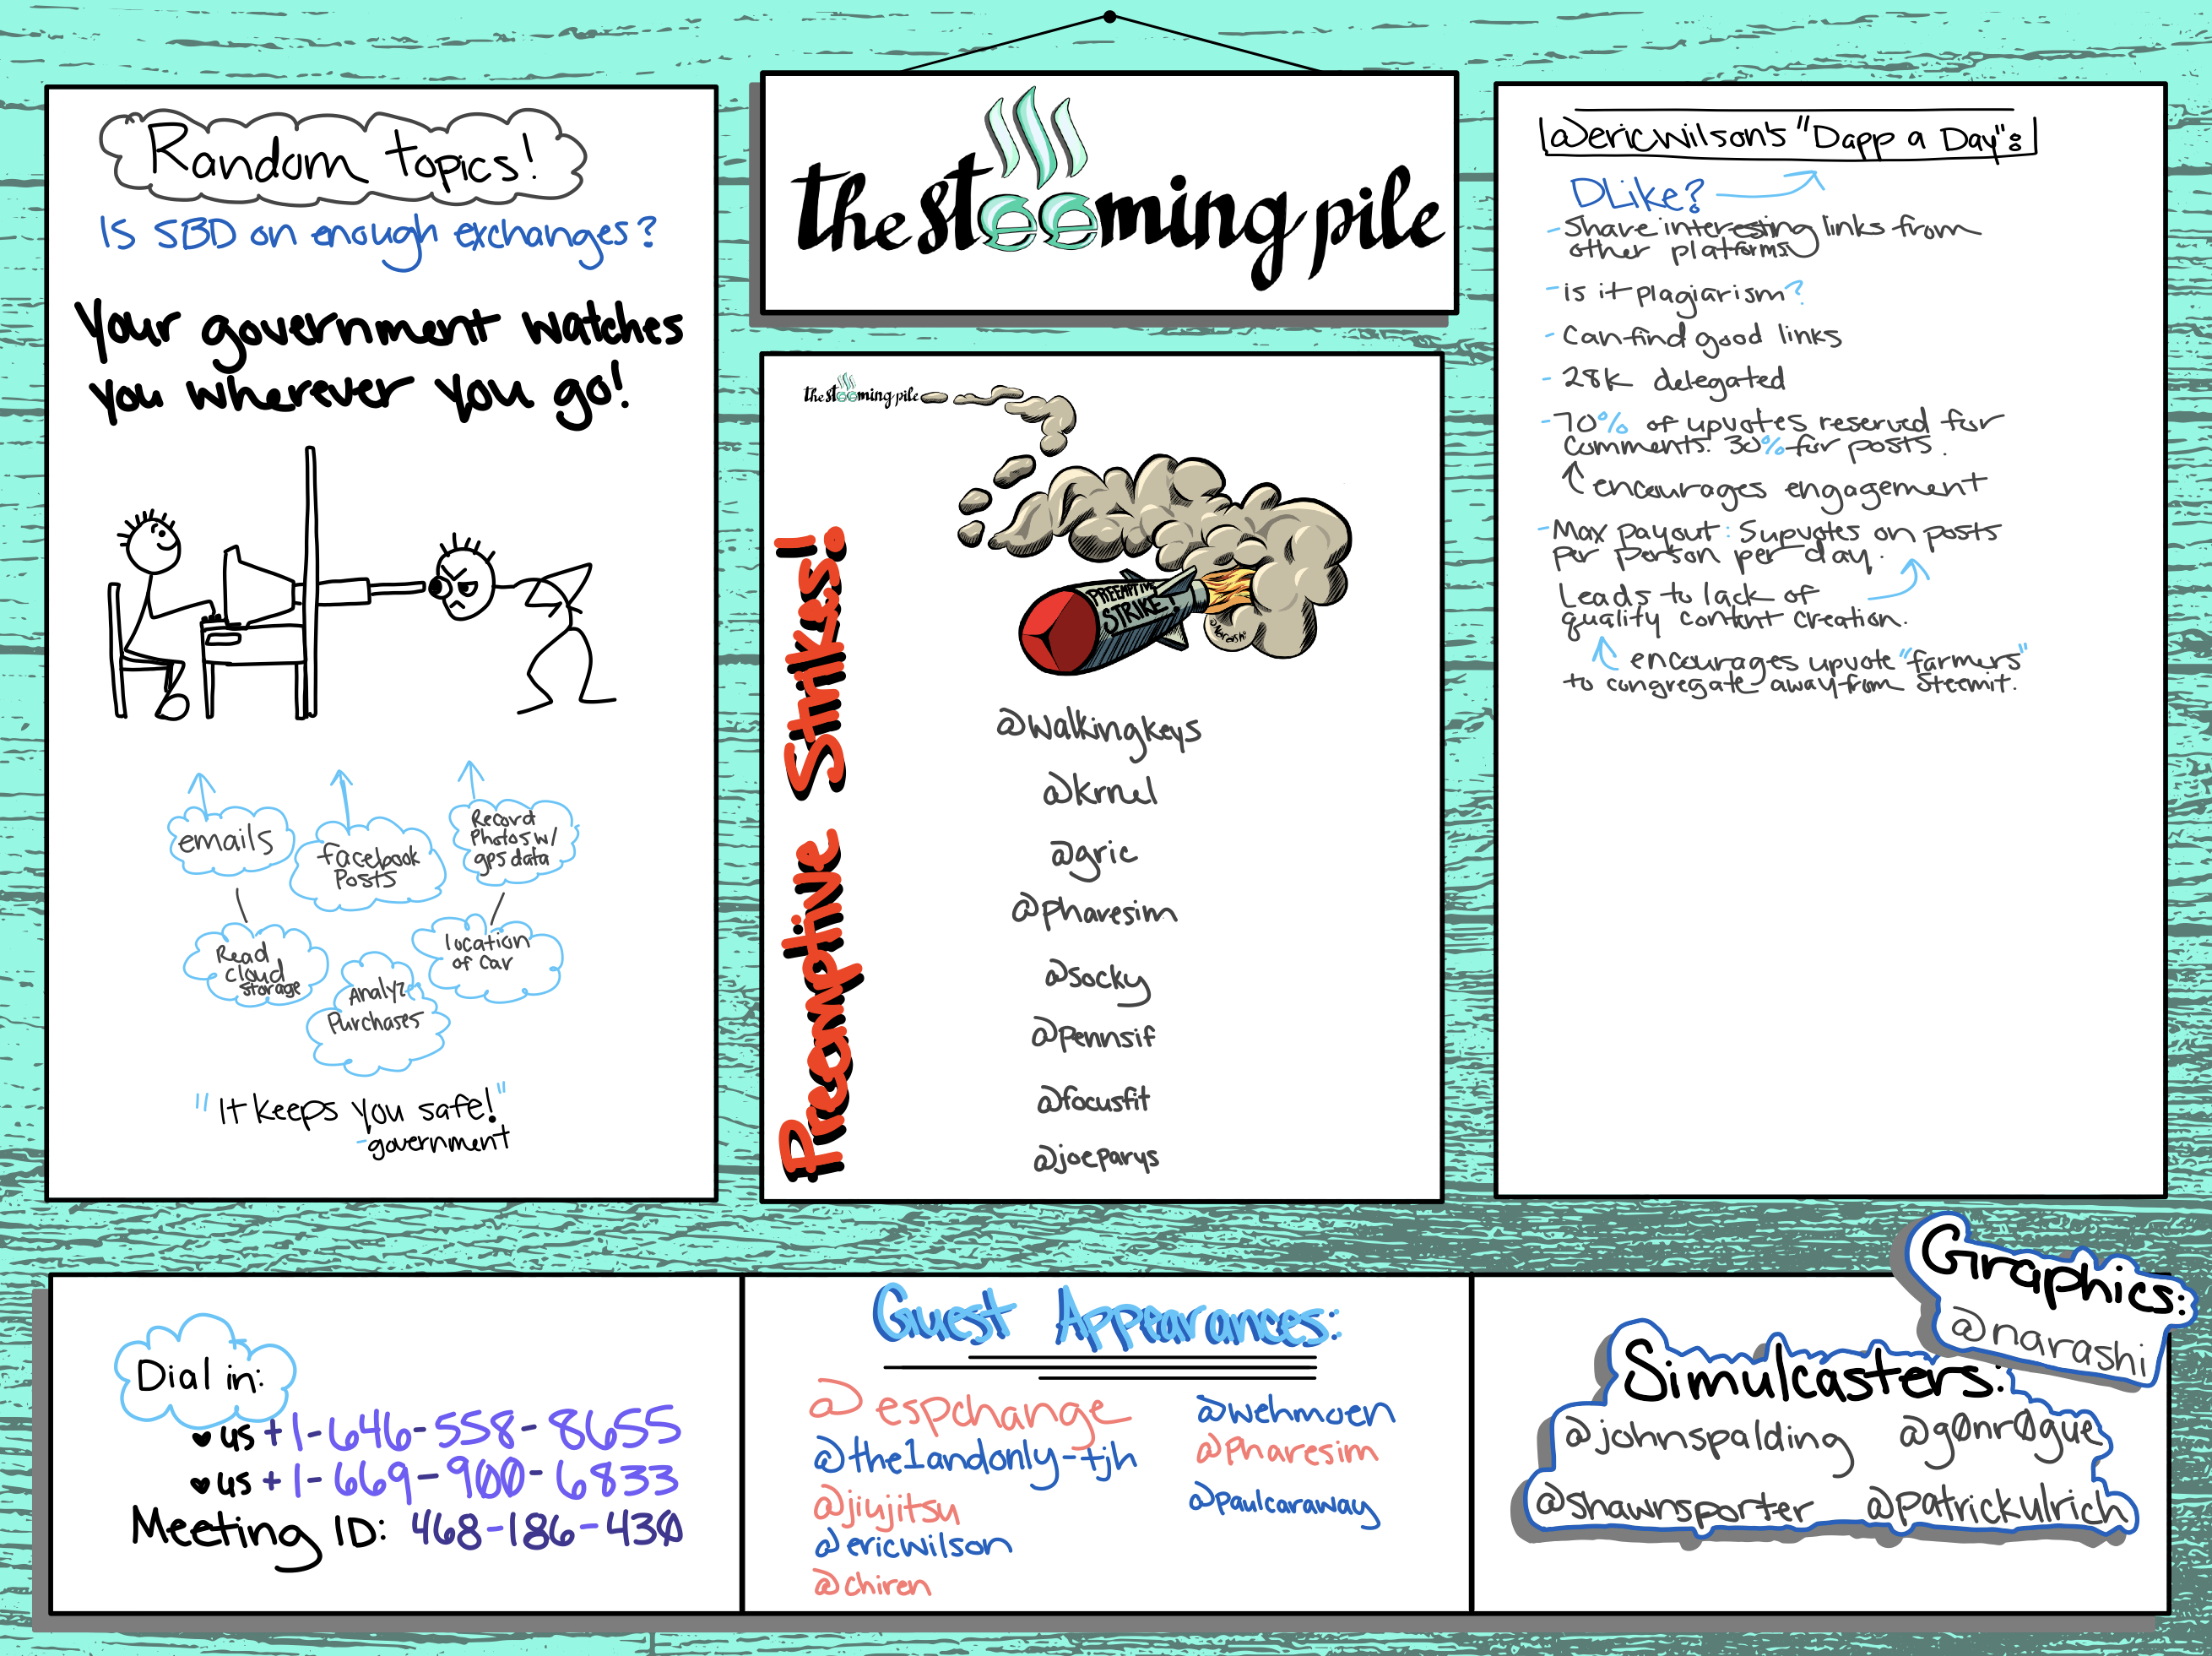 Random topics!
Is SBD on enough exchanges?
Your government watches
you wherever you go!
emails
facebook
Posts
Record
Photos w/
gps data
Read
cloud
storage
Analyze
Purchases
location
of car
"It keeps you safe!"
-government
the steeming pile
the steeming pile
PREEMPTIVE
STRIKE!
@Narashi
Preemptive Strikes!
@walkingkeys
@krnel
@gric
@pharesim
@socky
@pennsif
@focusfit
@joeparys
@ericwilson's "Dapp a Day":
DLike?
- Share interesting links from
other platforms
- is it plagiarism?
- Can find good links
- 28K delegated
- 70% of upvotes reserved for
comments. 30% for posts.
encourages engagement
- Max payout: 5 upvotes on posts
per person per day.
Leads to lack of
quality content creation.
encourages upvote "farmers"
to congregate away from Steemit.
Dial in:
us +1-646-558-8655
us +1-669-900-6833
Meeting ID: 468-186-430
Guest Appearances:
@espchange
@the1andonly-tjh
@jiujitsu
@ericwilson
@chiren
@wehmoen
@Pharesim
@paulcaraway
Graphics:
@narashi
Simulcasters:
@johnspalding @g0nr0gue
@shawnsporter @patrickulrich